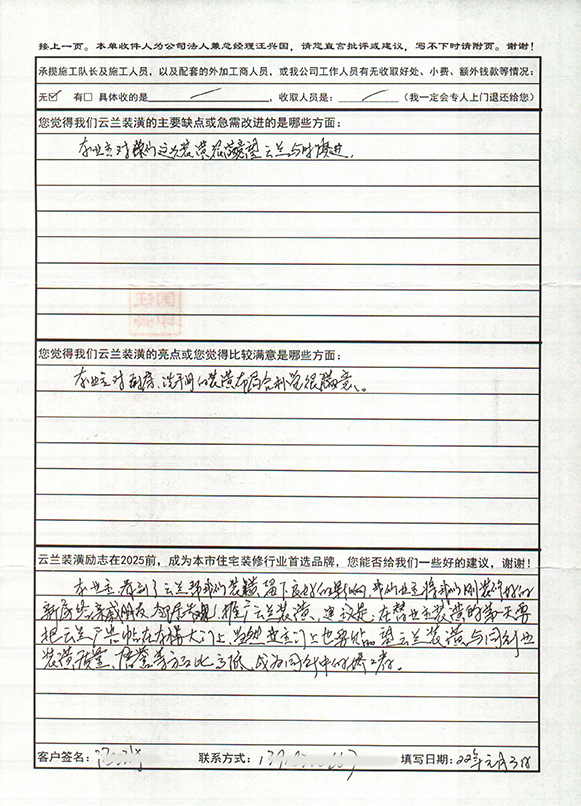 接上一页。本单收件人为公司法人兼总经理汪兴国，请您直言批评或建议，写不下时请附页。谢谢！
承揽施工队长及施工人员，以及配套的外加工商人员，或我公司工作人员有无收取好处、小费、额外钱款等情况：
无☑ 有□ 具体收的是 ，收取人员是： （我一定会专人上门退还给您）
您觉得我们云兰装潢的主要缺点或急需改进的是哪些方面：
本业主对 装潢很满意望云兰与时俱进。
您觉得我们云兰装潢的亮点或您觉得比较满意是哪些方面：
本业主对厨房、洗手间的装潢布局合理觉很满意。
云兰装潢励志在2025前，成为本市住宅装修行业首选品牌，您能否给我们一些好的建议，谢谢！
本业主看到了云兰帮我们装潢留下良好的 我们业主将我们刚装修好的
新房给亲戚朋友 推广云兰装潢，建议是：在替业主装潢的第一天要
把云兰广告帖在 大门上， 门上也要帖。望云兰装潢与同行业
装潢质量、 等方面比高低，成为同行中的佼佼者。
客户签名：
联系方式：
填写日期：22年元月3日